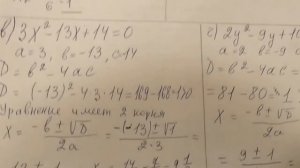 в) 3x² - 13x + 14 = 0
a = 3, в = -13, c 14
D = в² - 4ac
D = (-13)² - 4·3·14 = 169 - 168
Уравнение имеет 2 корня
X = (-в ± √D) / 2a = (-(-13) ± √1) / 2·3 =
2y² - 9y + 10
a = 2 в = -9
D = в² - 4ac =
= 81 - 80 =
X = (-в ± √D) / 2a
= 9 ± 1